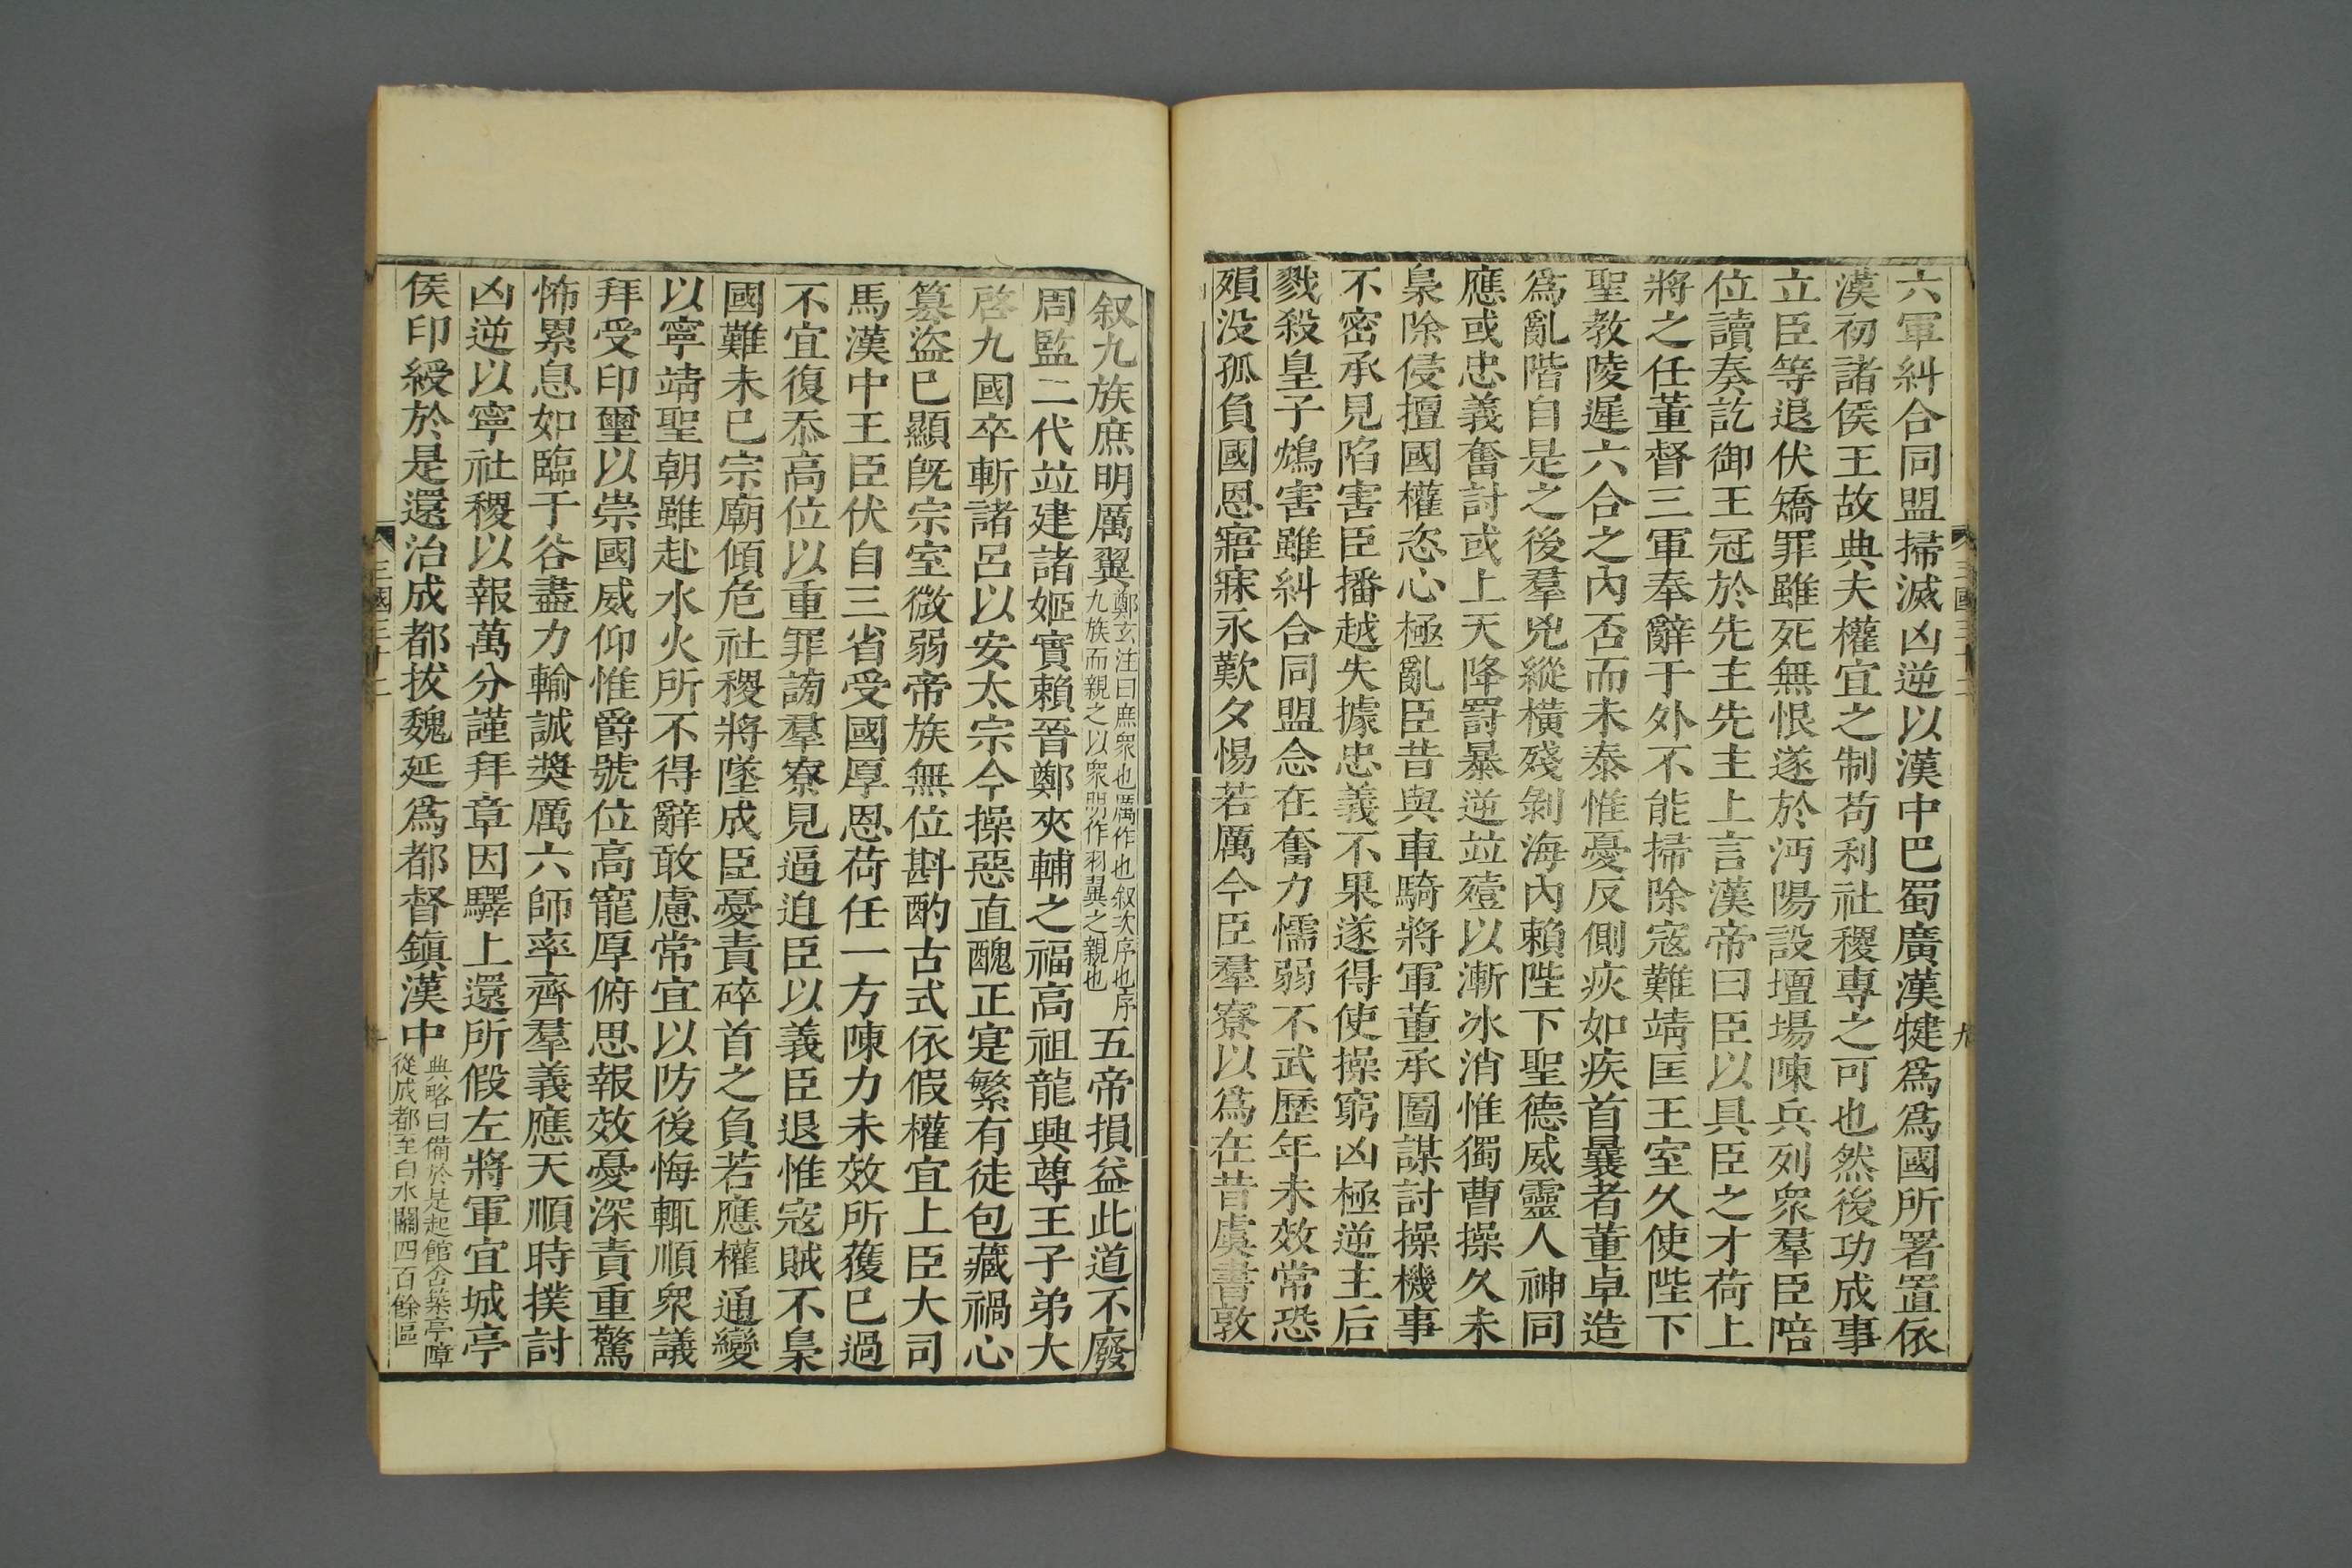 六軍糾合同盟掃滅凶逆以漢中巴蜀廣漢犍爲爲國所署置依
漢初諸侯王故典夫權宜之制苟利社稷專之可也然後功成事
立臣等退伏矯罪雖死無恨遂於沔陽設壇場陳兵列衆羣臣陪
位讀奏訖御王冠於先主先主上言漢帝曰臣以具臣之才荷上
將之任董督三軍奉辭于外不能掃除寇難靖匡王室久使陛下
聖教陵遲六合之內否而未泰惟憂反側疢如疾首曩者董卓造
爲亂階自是之後羣兇縱橫殘剝海內賴陛下聖德威靈人神同
應或忠義奮討或上天降罰暴逆竝殪以漸冰消惟獨曹操久未
梟除侵擅國權恣心極亂臣昔與車騎將軍董承圖謀討操機事
不密承見陷害臣播越失據忠義不果遂得使操窮凶極逆主后
戮殺皇子鴆害雖糾合同盟念在奮力懦弱不武歷年未效常恐
殞没孤負國恩寤寐永歎夕惕若厲今臣羣寮以爲在昔虞書敦
三國三十二
九
叙九族庶明厲翼鄭玄注曰庶衆也厲作也叙次序也序
九族而親之以衆明作羽翼之親也五帝損益此道不廢
周監二代竝建諸姬實賴晉鄭夾輔之福高祖龍興尊王子弟大
啓九國卒斬諸呂以安太宗今操惡直醜正寔繁有徒包藏禍心
篡盜已顯旣宗室微弱帝族無位斟酌古式依假權宜上臣大司
馬漢中王臣伏自三省受國厚恩荷任一方陳力未效所獲已過
不宜復忝高位以重罪謗羣寮見逼迫臣以義臣退惟寇賊不梟
國難未已宗廟傾危社稷將墜成臣憂責碎首之負若應權通變
以寧靖聖朝雖赴水火所不得辭敢慮常宜以防後悔輒順衆議
拜受印璽以崇國威仰惟爵號位高寵厚俯思報效憂深責重驚
怖累息如臨于谷盡力輸誠奬厲六師率齊羣義應天順時撲討
凶逆以寧社稷以報萬分謹拜章因驛上還所假左將軍宜城亭
侯印綬於是還治成都拔魏延爲都督鎮漢中典略曰備於是起館舍築亭障
從成都至白水關四百餘區
三國三十二